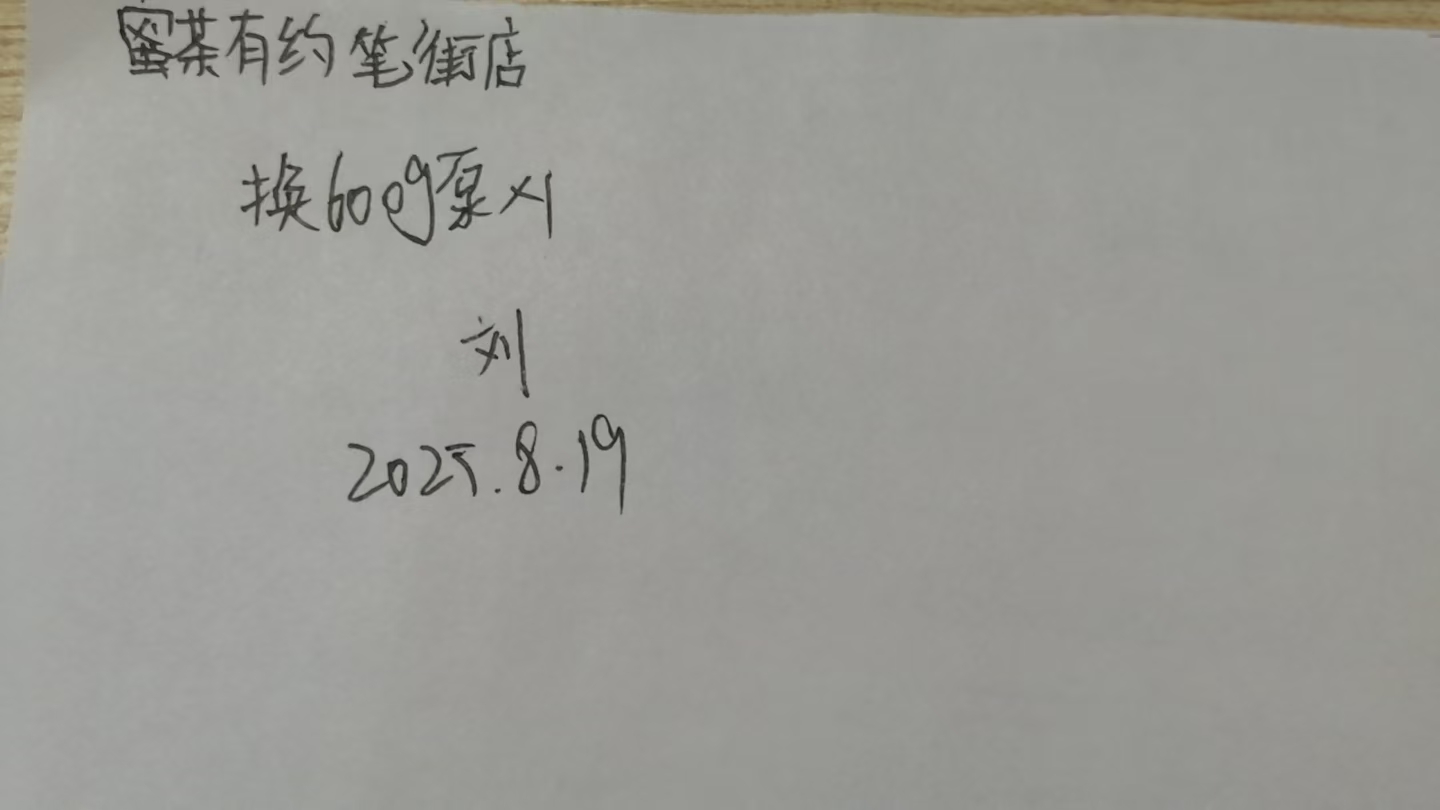 蜜茶有约笔街店
换600g泵×1
刘
2025.8.19